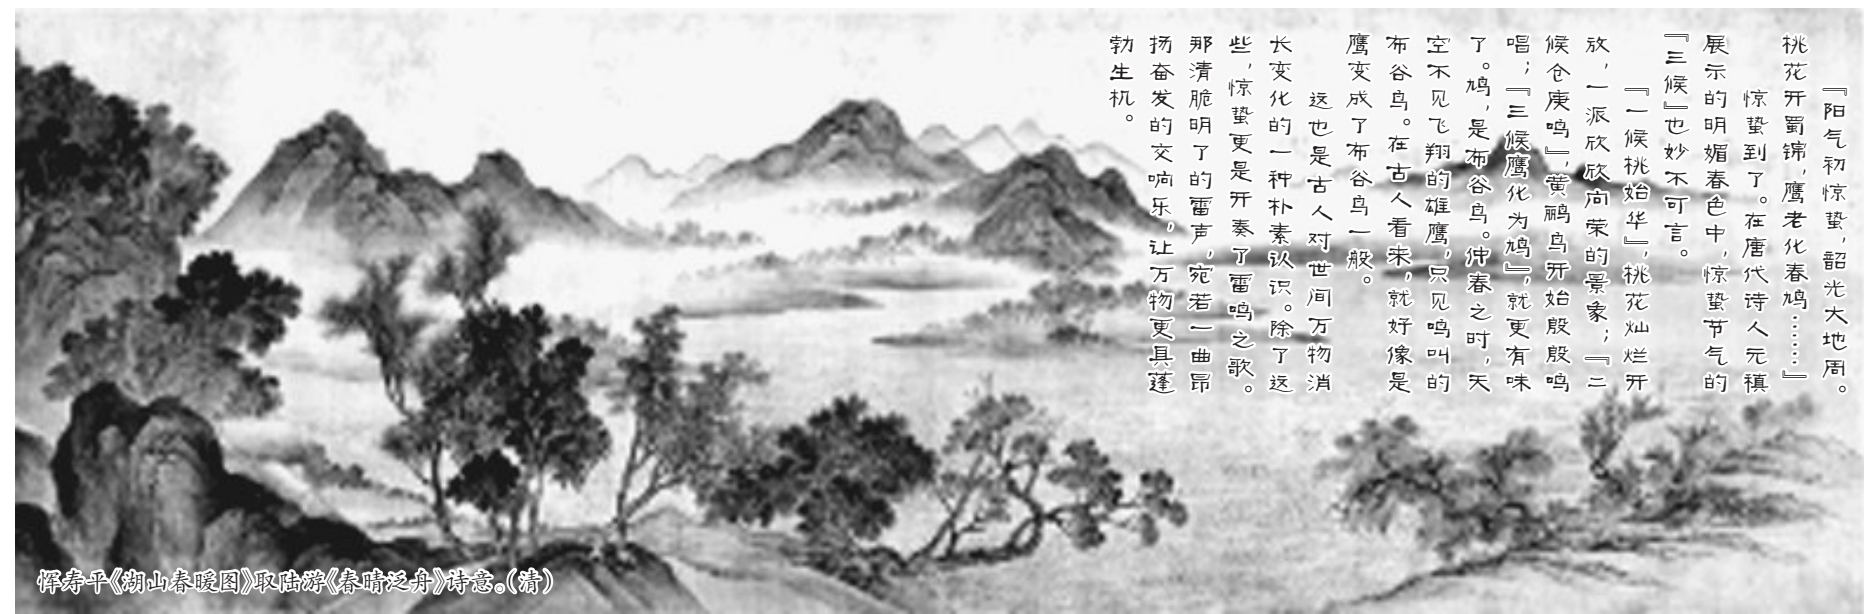 『阳气初惊蛰，韶光大地周。
桃花开蜀锦，鹰老化春鸠……』
惊蛰到了。在唐代诗人元稹
展示的明媚春色中，惊蛰节气的
『三候』也妙不可言。
『一候桃始华』，桃花灿烂开
放，一派欣欣向荣的景象；『二
候仓庚鸣』，黄鹂鸟开始殷殷鸣
唱；『三候鹰化为鸠』，就更有味
了。鸠，是布谷鸟。仲春之时，天
空不见飞翔的雄鹰，只见鸣叫的
布谷鸟。在古人看来，就好像是
鹰变成了布谷鸟一般。
这也是古人对世间万物消
长变化的一种朴素认识。除了这
些，惊蛰更是开奏了雷鸣之歌。
那清脆明了的雷声，宛若一曲昂
扬奋发的交响乐，让万物更具蓬
勃生机。
恽寿平《湖山春暖图》取陆游《春晴泛舟》诗意。（清）